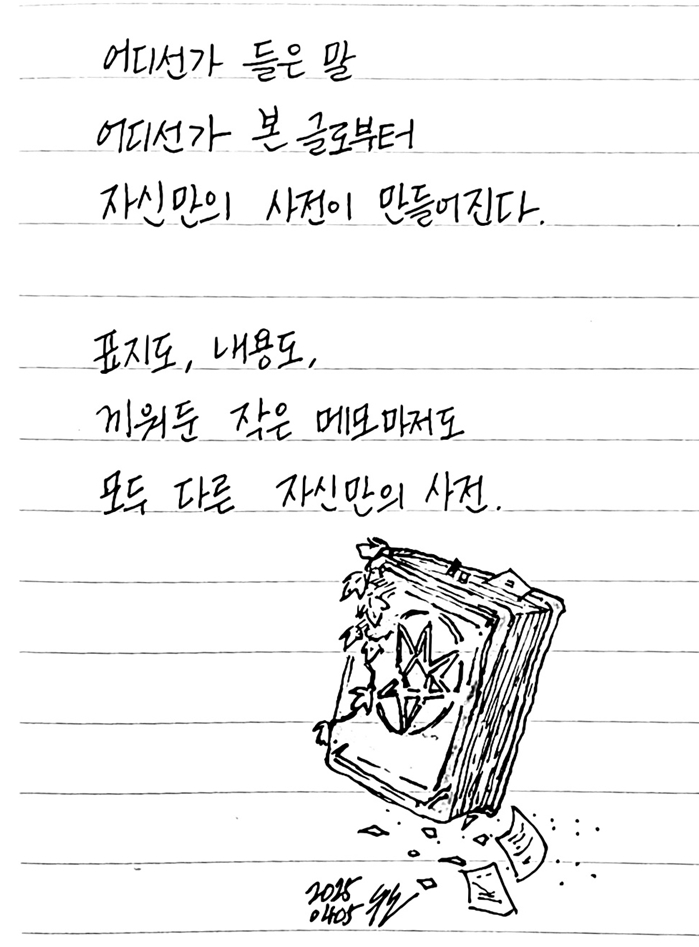 어디선가 들은 말
어디선가 본 글로부터
자신만의 사전이 만들어진다.
표지도, 내용도,
끼워둔 작은 메모마저도
모두 다른 자신만의 사전.
2025
0405